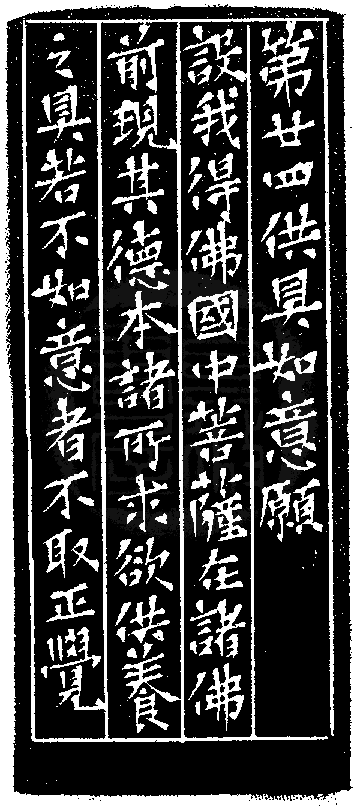 第廿四供具如意願
設我得佛國中菩薩在諸佛
前現其德本諸所求欲供養
之具若不如意者不取正覺